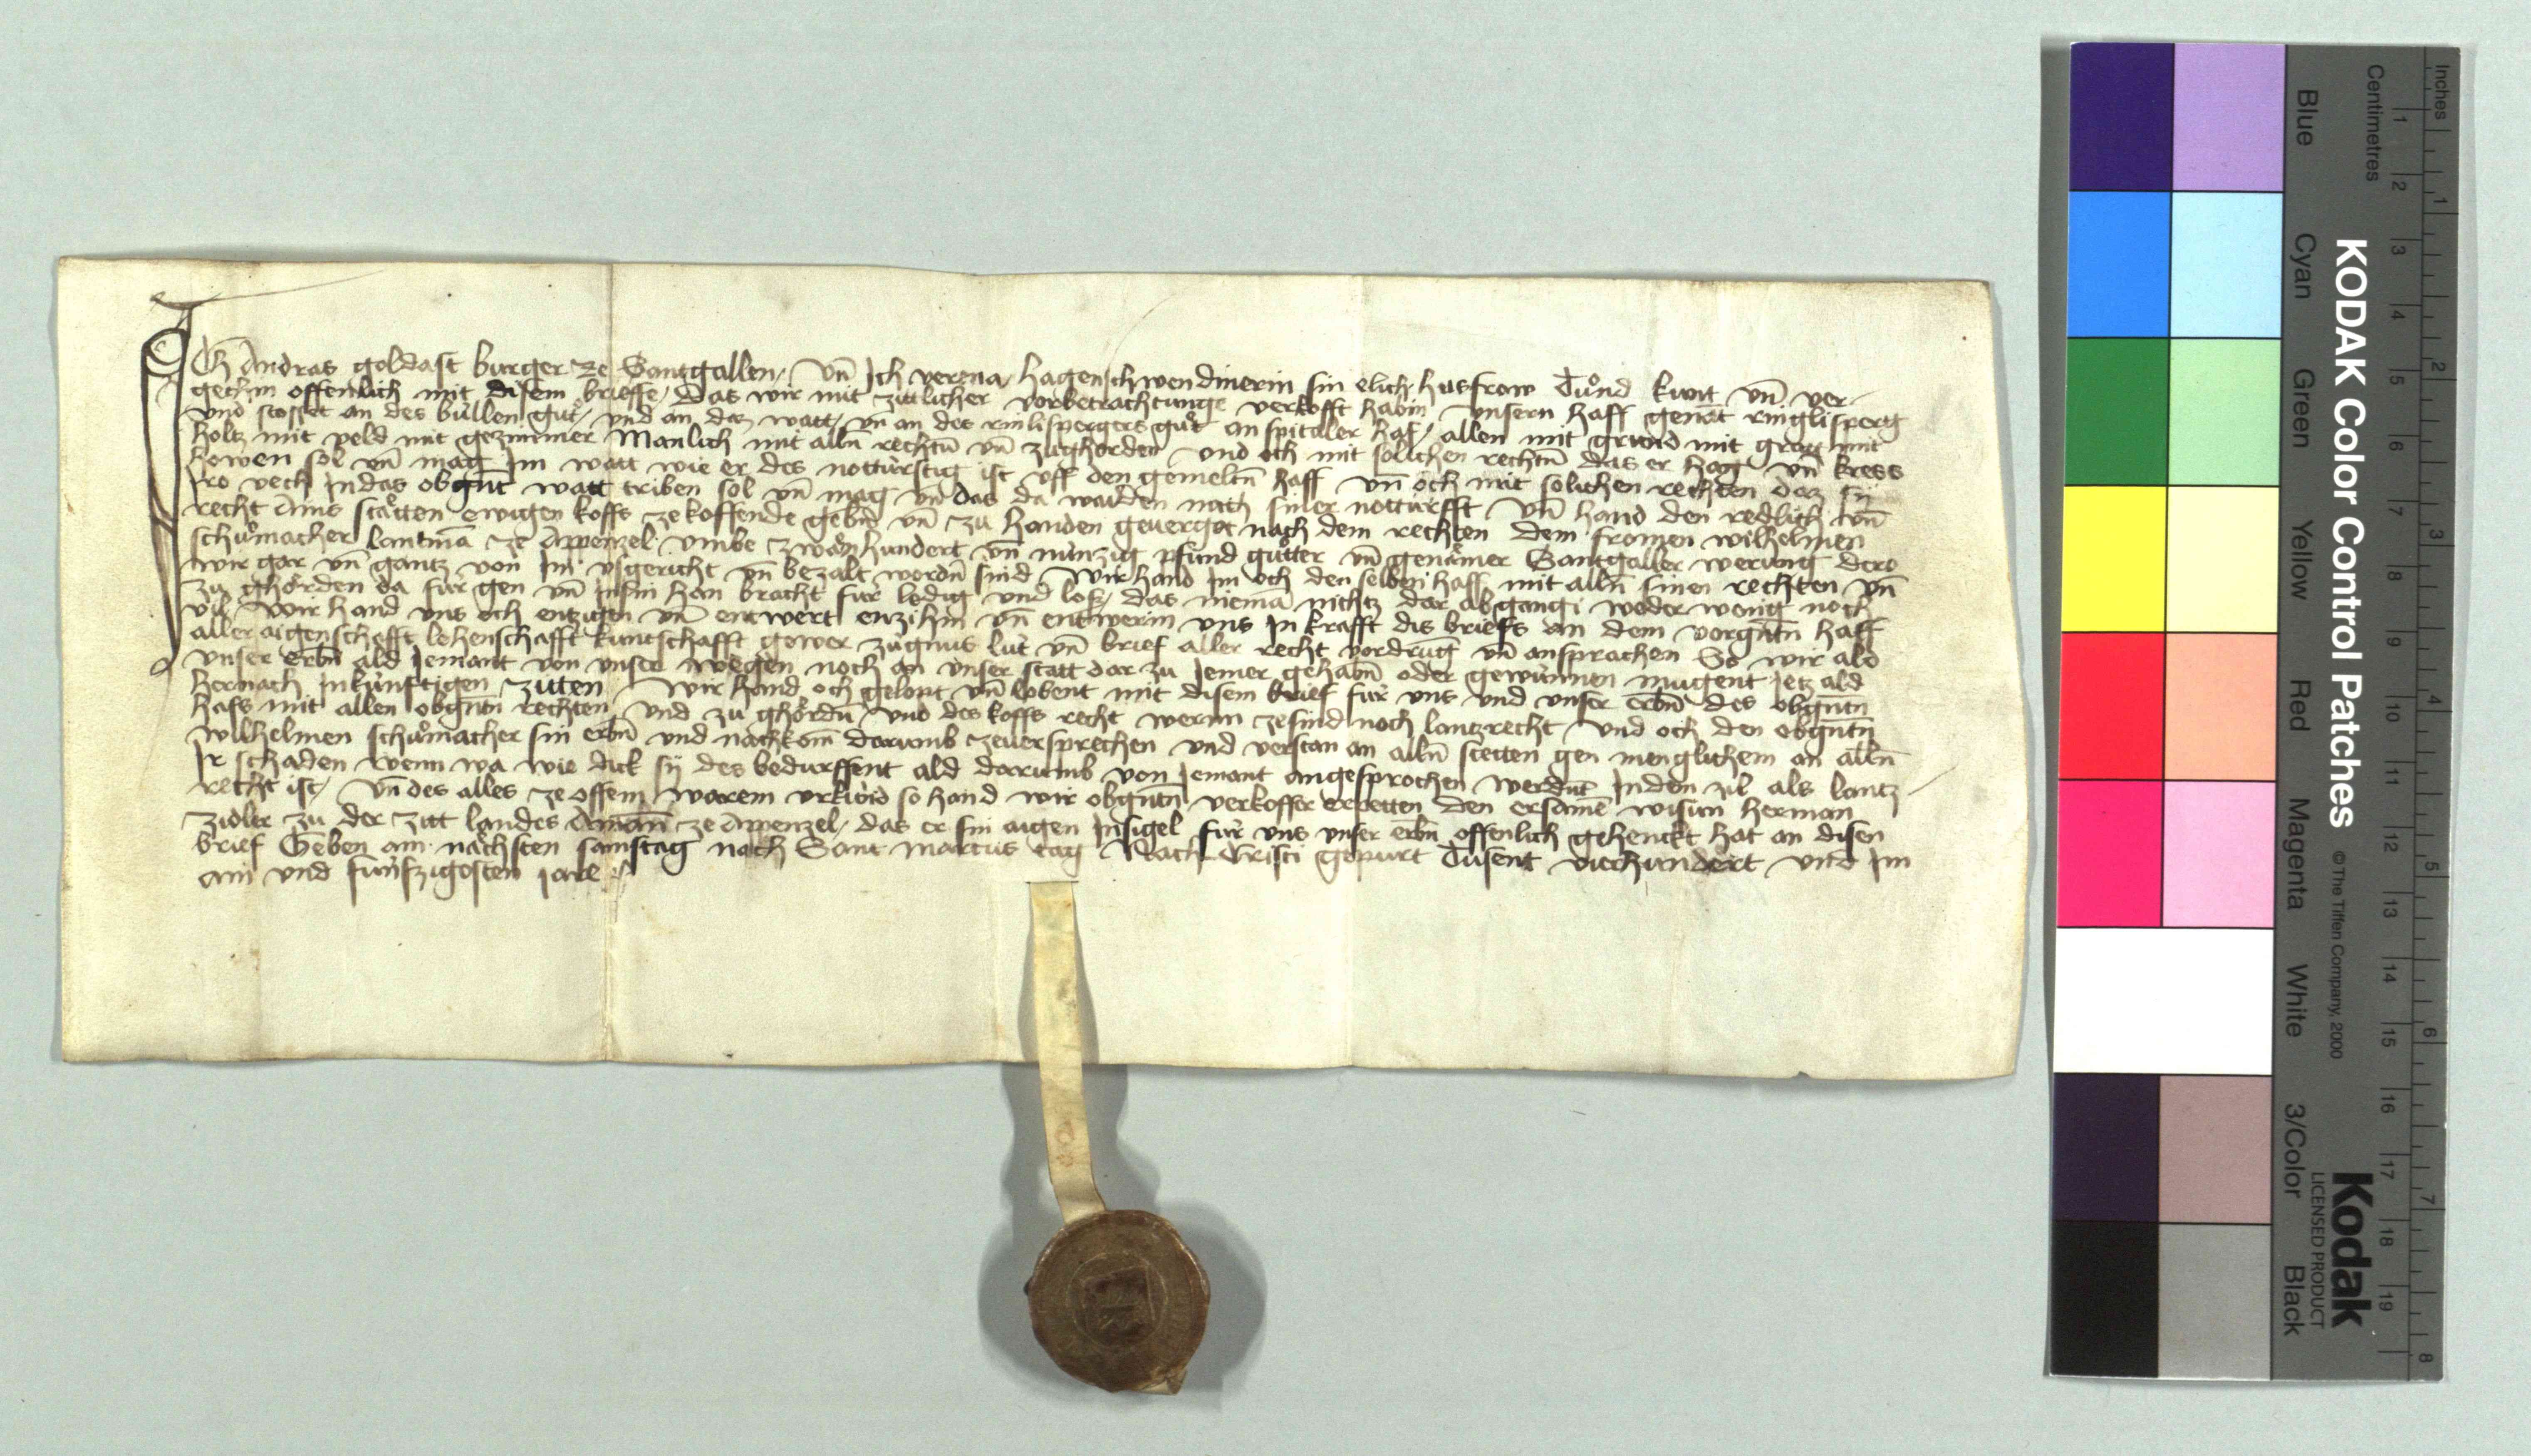 Ich Andras goldast burger ze Santgallen, vn̄ Ich verena hagenschwendinerin sin elich husfrow Tuͦnd kunt vn̄ ver-
gechin offenlich mit disem brieffe, Das wir mit zittlicher vorbetrachtunge verkofft habin vnsern haff genāt ringlisperg
vnd stosset an des bullen guͦt, vnd an daz watt, vn̄ an des rinlispergers guͦt an spitaler haf, allen mit grund mit gratt mit
holtz mit veld mit gezimmer Manlich mit alln̄ rechtn̄ vn̄ zuͦghorden vnd och mit sollichen rechtn̄ das er hag vn̄ kress
howen sol vn̄ mag Im watt wie er des notturftig ist vff den gemeltn̄ haff vn̄ och mit solichen rechten daz sy
Iro vech In das obgn̄t watt triben sol vn̄ mag vn̄ das da waiden nach siner notturfft vn̄ hand den redlich vn̄
recht Ains staͤtten ewigen koffs ze koffende gebn̄ vn̄ zu handen geuergot nach dem rechten dem fromen wilhelmen
schuͦmacher lantmā ze Appenzel vmbe zwaͤyhundert vn̄ nünzig pfund guͦtter vn̄ genaͤmer Santgaller werung dero
wir gar vn̄ gantz von Im vsgericht vn̄ bezalt wordn̄ sind, wir hand Im och den selben haff mit alln̄ sinen rechten vn̄
zuͦ ghörden da für gen vn̄ Insin han bracht für ledig vnd los, das niemā nichtz dar ab gangi weder wenig noch
vil wir hand vns och entzigen vn̄ entwert enzihin vn̄ entwerin vns In krafft dis briefs an dem vorgn̄tn̄ haff
aller aigenschafft lehenschafft kuntschafft gewer zügnus lüt vn̄ brief aller recht vordrung vn̄ ansprachen So wir ald
vnser erbn̄ ald Iemant von vnser wegen noch an vnser statt dar zu Iemer gehabn̄ oder gewünnen mugent Ietz ald
hernach Inkünftigen zitten wir hand och gelopt vn̄ lobent mit disem brief für vns vnd vnser erbn̄ des obgn̄tn̄
hafs mit allen obgn̄tn̄ rechten vnd zu ghördn̄ vnd des koffs recht werin zesind noch lantzrecht vnd och den obgn̄tn̄
wilhelmen schuͦmacher sin erbn̄ vnd nachkom̄ darumb zeuersprechen vnd verstan an alln̄ stetten gen menglichem an alln̄
Ir schaden wenn wa wie dick sy des bedurffent ald darumb von Iemant angesprochen werdn̄t Inden zil als lantz-
recht ist, vn̄ des alles ze offem warem vrkünd so hand wir obgn̄tn̄ verkoffer erbetten den ersamē wisun herman
zidler zu der zitt landes Amān ze Appenzel, das er sin aigen Insigel für vns vnser erbn̄ offenlich gehenckt hat an disen
brief Geben am nächsten samstag nach Sant marcus tag Nach Cristi gepurt Tusent vierhundert vnd Im
ain vnd fünfzigosten Jare
KODAK Color Control Patches
© The Tiffen Company, 2000
Kodak
LICENSED PRODUCT
Inches
Centimetres
Blue
Cyan
Green
Yellow
Red
Magenta
White
3/Color
Black
1 2 3 4 5 6 7 8 9 10 11 12 13 14 15 16 17 18 19
1 2 3 4 5 6 7 8